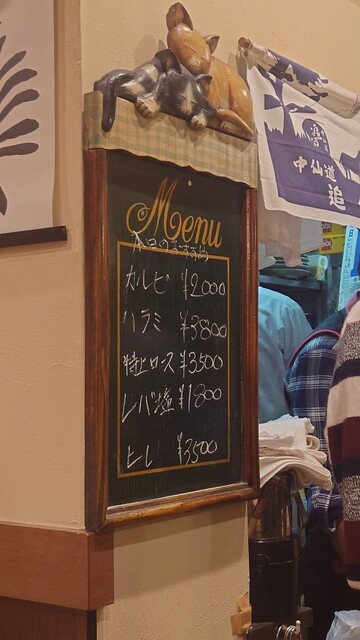 Menu
本日のおすすめ
カルビ ¥2000
ハラミ ¥3800
特上ロース ¥3500
レバ塩 ¥1800
ヒレ ¥3500
中仙道
追